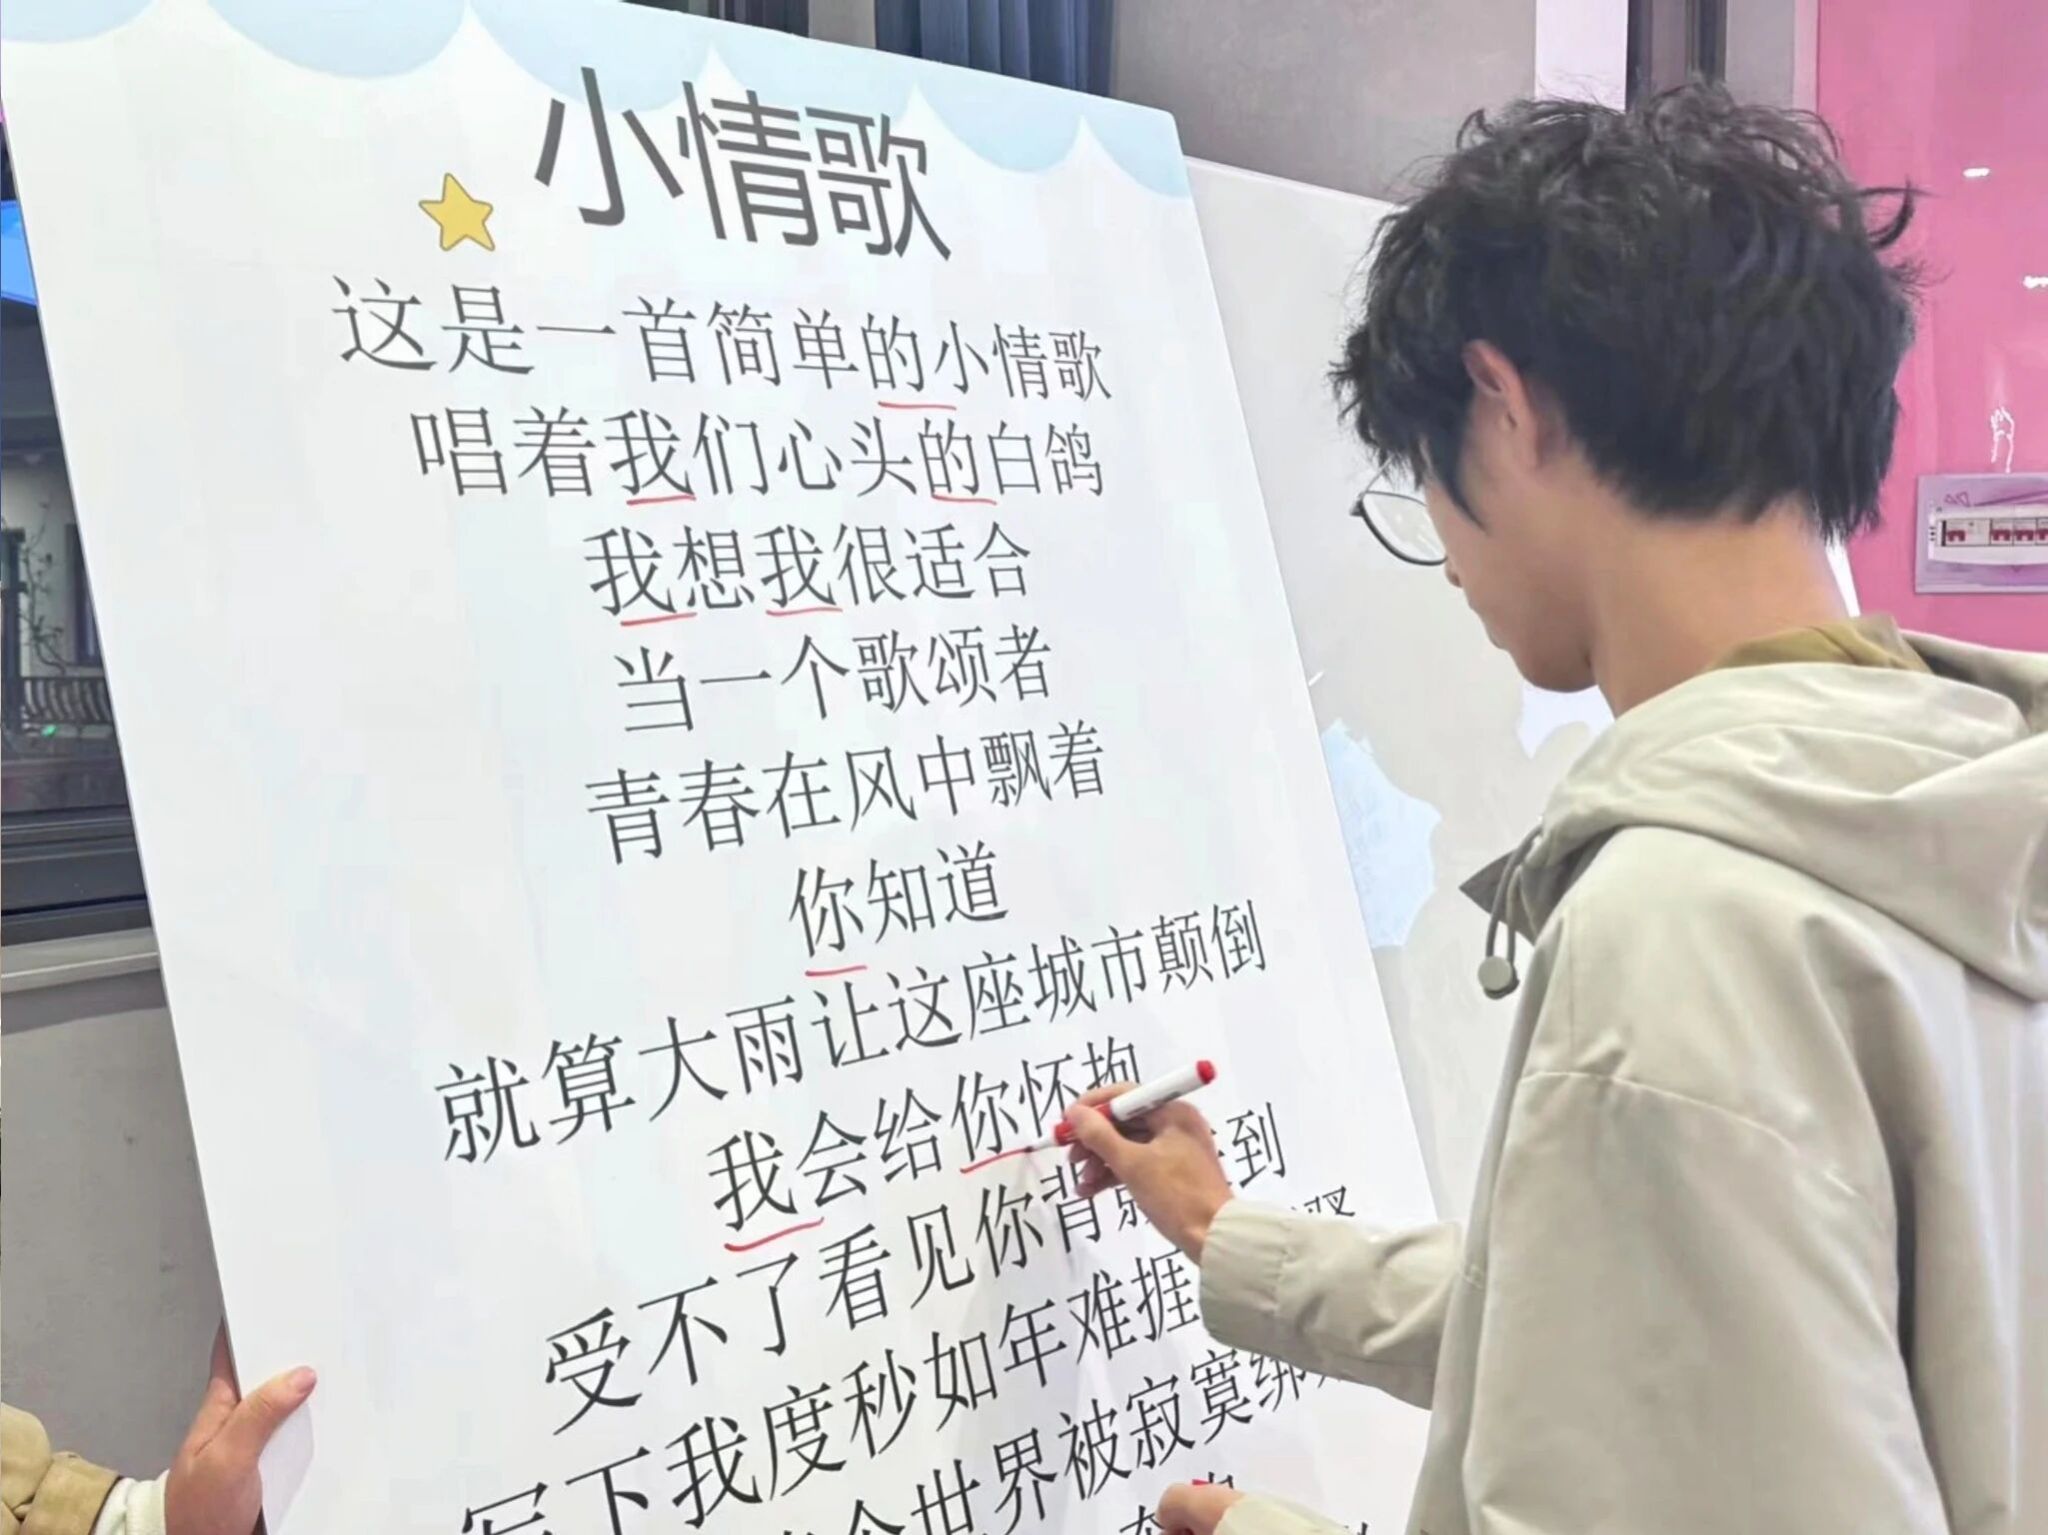 小情歌
这是一首简单的小情歌
唱着我们心头的白鸽
我想我很适合
当一个歌颂者
青春在风中飘着
你知道
就算大雨让这座城市颠倒
我会给你怀抱
受不了看见你背影来到
写下我度秒如年难捱
世界被寂寞绑